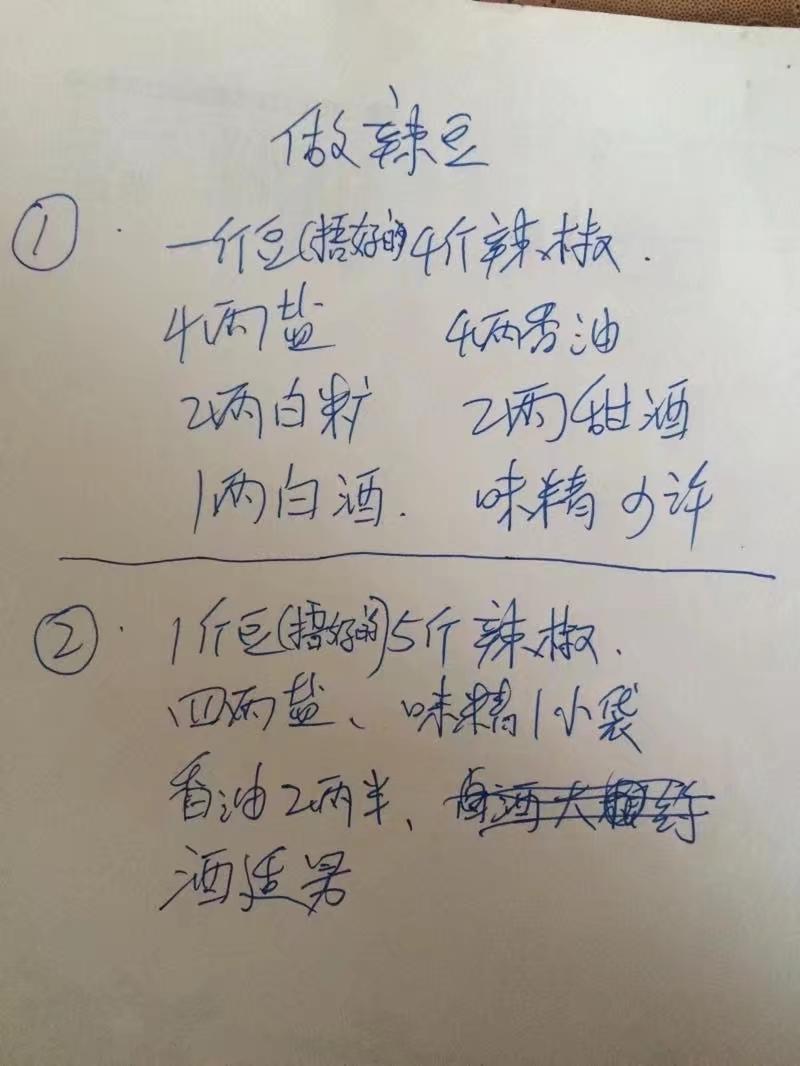 做辣豆
① 一斤豆(捂好的 4斤辣椒.
4两盐 4两香油
2两白籿 2两甜酒
1两白酒. 味精少许
② 1斤豆(捂好的)5斤辣椒.
四两盐、味精1小袋
香油2两半、
酒适